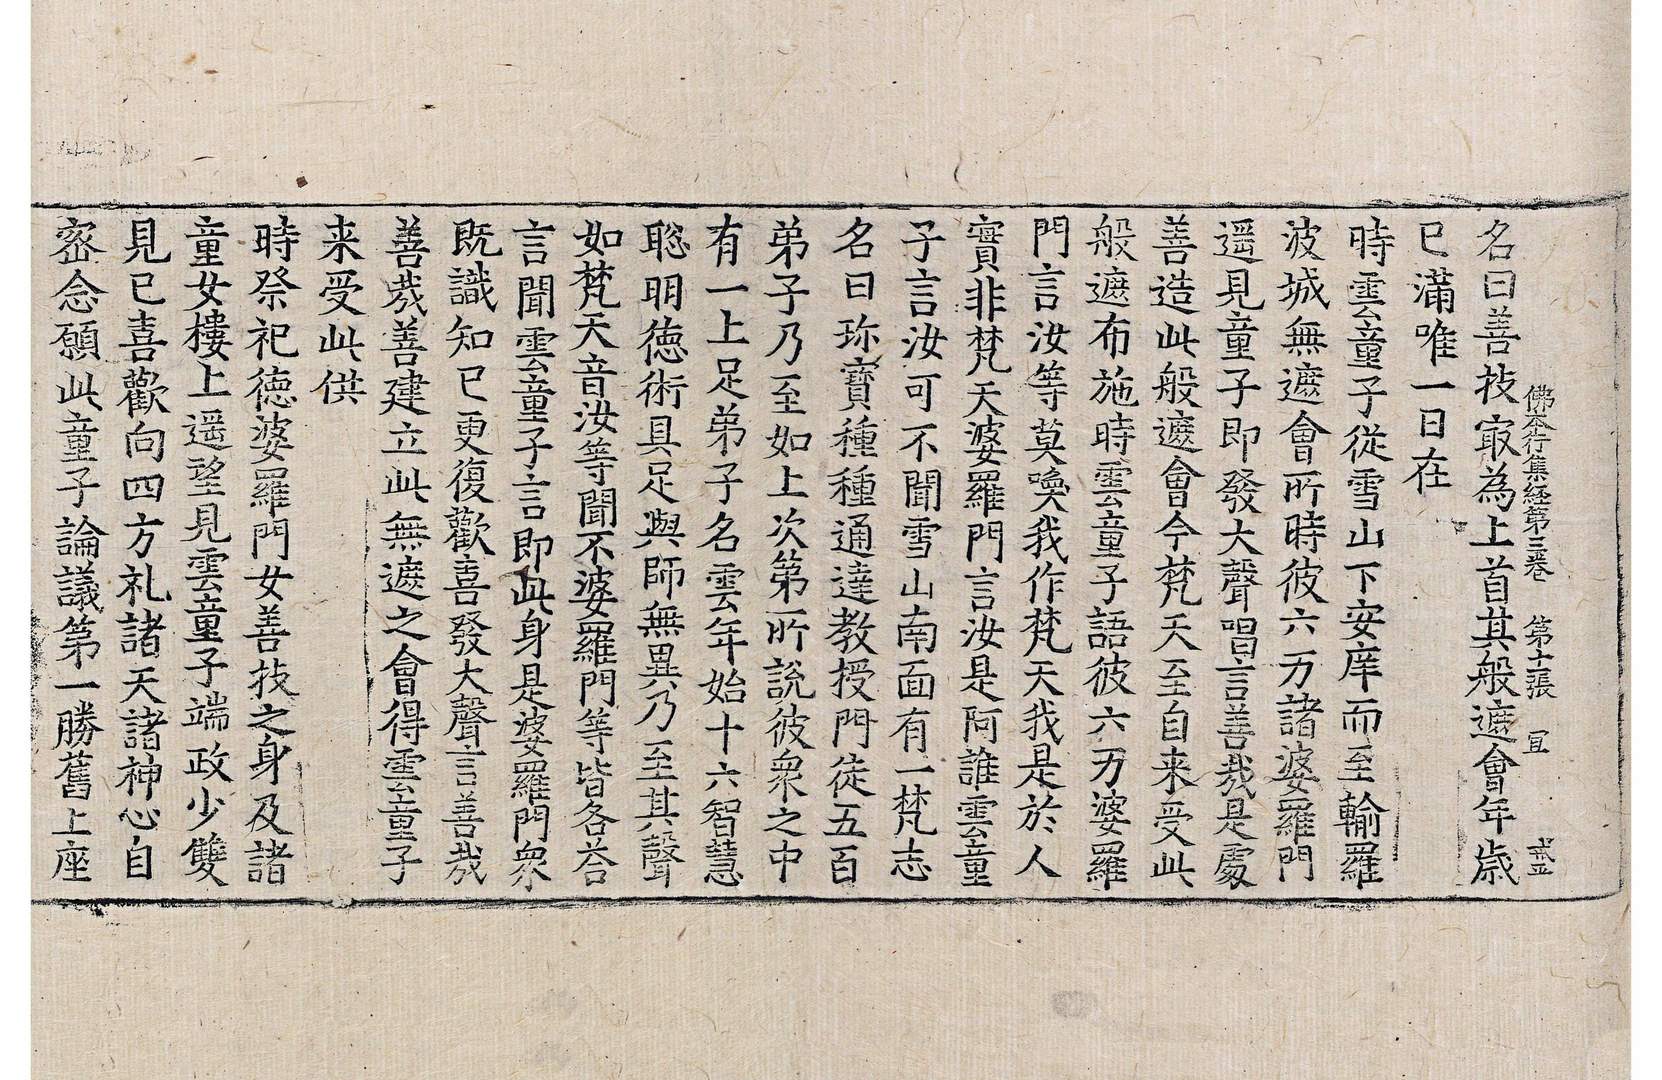 佛本行集経第三卷 第十張 冝
名曰善技㝡為上首其般遮會年歲
已滿唯一日在
時雲童子從雪山下安庠而至輸羅
波城無遮會所時彼六万諸婆羅門
遥見童子即發大聲唱言善㢤是處
善造此般遮會今梵天至自来受此
般遮布施時雲童子語彼六万婆羅
門言汝等莫喚我作梵天我是於人
實非梵天婆羅門言汝是阿誰雲童
子言汝可不聞雪山南面有一梵志
名曰珎寶種種通達教授門徒五百
弟子乃至如上次第所說彼衆之中
有一上足弟子名雲年始十六智慧
聡明德術具足與師無異乃至其聲
如梵天音汝等聞不婆羅門等皆各荅
言聞雲童子言即此身是婆羅門衆
既識知已更復歡喜發大聲言善㢤
善㢤善建立此無遮之會得雲童子
来受此供
時祭祀德婆羅門女善技之身及諸
童女樓上遥望見雲童子端政少雙
見已喜歡向四方礼諸天諸神心自
密念願此童子論議第一勝舊上座